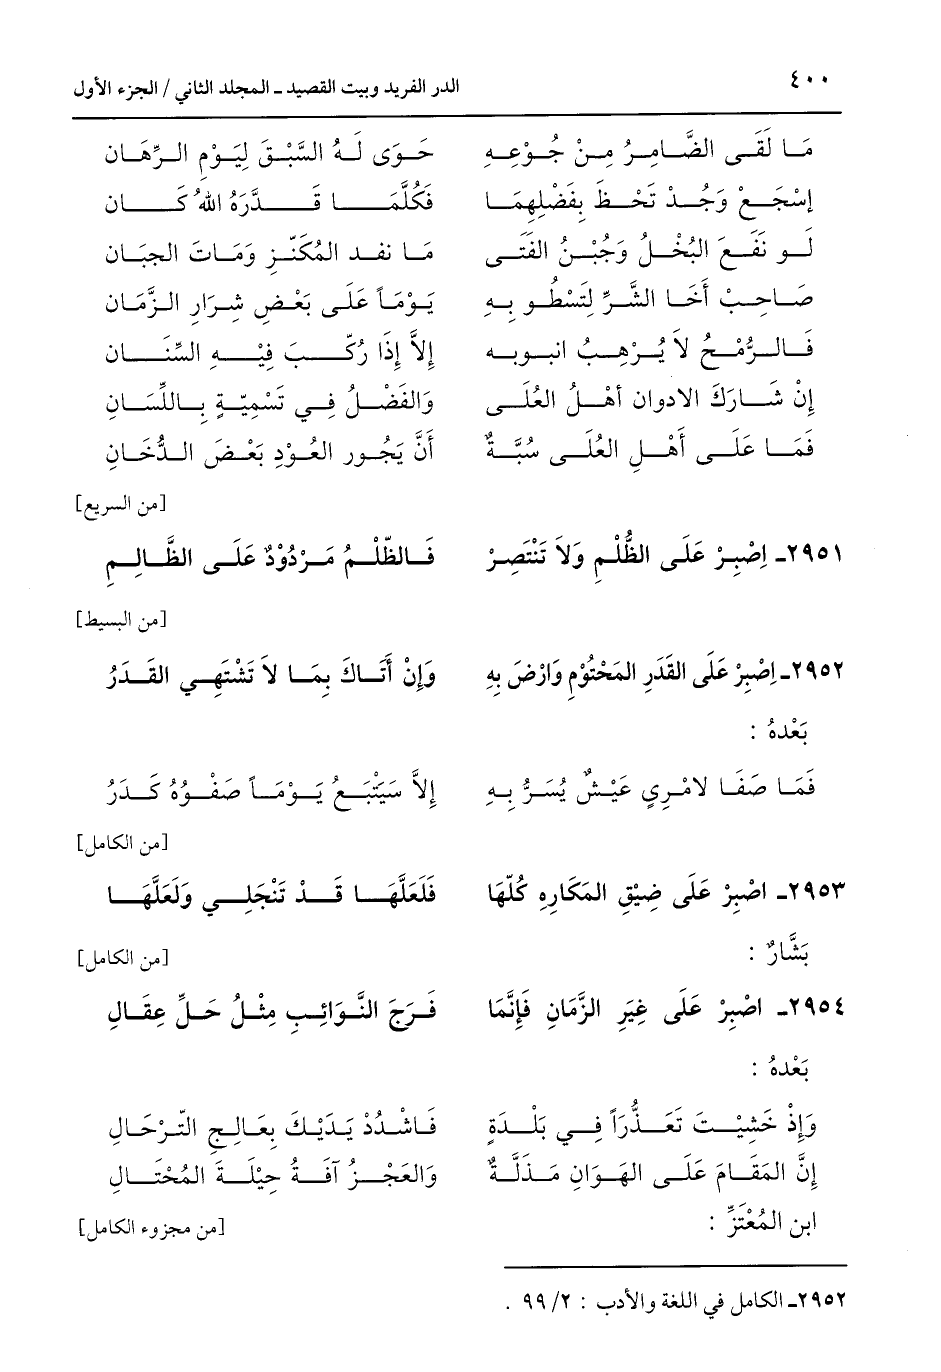 ٤٠٠ الدر الفريد وبيت القصيد ـ المجلد الثاني / الجزء الأول
مَا لَقَى الضَّامِرُ مِنْ جُوْعِهِ حَوَى لَهُ السَّبْقَ لِيَوْمِ الرِّهَان
إسْجَعْ وَجُدْ تَحْظَ بِفَضْلِهِمَا فَكُلَّمَا قَدَّرَهُ اللهُ كَان
لَو نَفَعَ البُخْلُ وَجُبْنُ الفَتَى مَا نفد المُكَنّزِ وَمَاتَ الجبَان
صَاحِبْ أَخَا الشَّرِّ لِتَسْطُو بِهِ يَوْمَاً عَلَى بَعْضِ شِرَارِ الزَّمَان
فَالرُّمْحُ لاَ يُرْهِبُ انبوبه إلاَّ إذَا رُكّبَ فِيْهِ السِّنَان
إنْ شَارَكَ الادوان أهْلُ العُلَى وَالفَضْلُ فِي تَسْمِيَةٍ بِاللِّسَان
فَمَا عَلَى أَهْلِ العُلَى سُبَّةٌ أَنَّ يَجُور العُوْدِ بَعْضَ الدُّخَانِ
[من السريع]
٢٩٥١ـ اِصْبِرْ عَلَى الظُّلْمِ وَلاَ تَنْتَصِرْ فَالظّلْمُ مَرْدُوْدٌ عَلَى الظَّالِمِ
[من البسيط]
٢٩٥٢ـ اِصْبِرْ عَلَى القَدَرِ المَحْتُوْمِ وَارْضَ بِهِ وَإنْ أَتَاكَ بِمَا لاَ تَشْتَهِي القَدَرُ
بَعْدهُ :
فَمَا صَفَا لامْرِي عَيْشٌ يُسَرُّ بِهِ إلاَّ سَيَتْبَعُ يَوْمَاً صَفْوُهُ كَدَرُ
[من الكامل]
٢٩٥٣ـ اصْبِرْ عَلَى ضِيْقِ المَكَارِهِ كُلّهَا فَلَعَلَّهَا قَدْ تَنْجَلِي وَلَعَلَّهَا
بَشَّارٌ : [من الكامل]
٢٩٥٤ـ اصْبِرْ عَلَى غِيَرِ الزَّمَانِ فَإنَّمَا فَرَجَ النَّوَائِبِ مِثْلُ حَلِّ عِقَالِ
بَعْدهُ :
وَإذْ خَشِيْتَ تَعَذُّرَاً فِي بَلْدَةٍ فَاشْدُدْ يَدَيْكَ بَعَالِجِ التّرْحَالِ
إنَّ المَقَامَ عَلَى الهَوَانِ مَذَلَّةٌ وَالعَجْزُ آفَةُ حِيْلَةَ المُحْتَالِ
ابن المُعْتَزِّ : [من مجزوء الكامل]
٢٩٥٢ـ الكامل في اللغة والأدب : ٢/ ٩٩ .